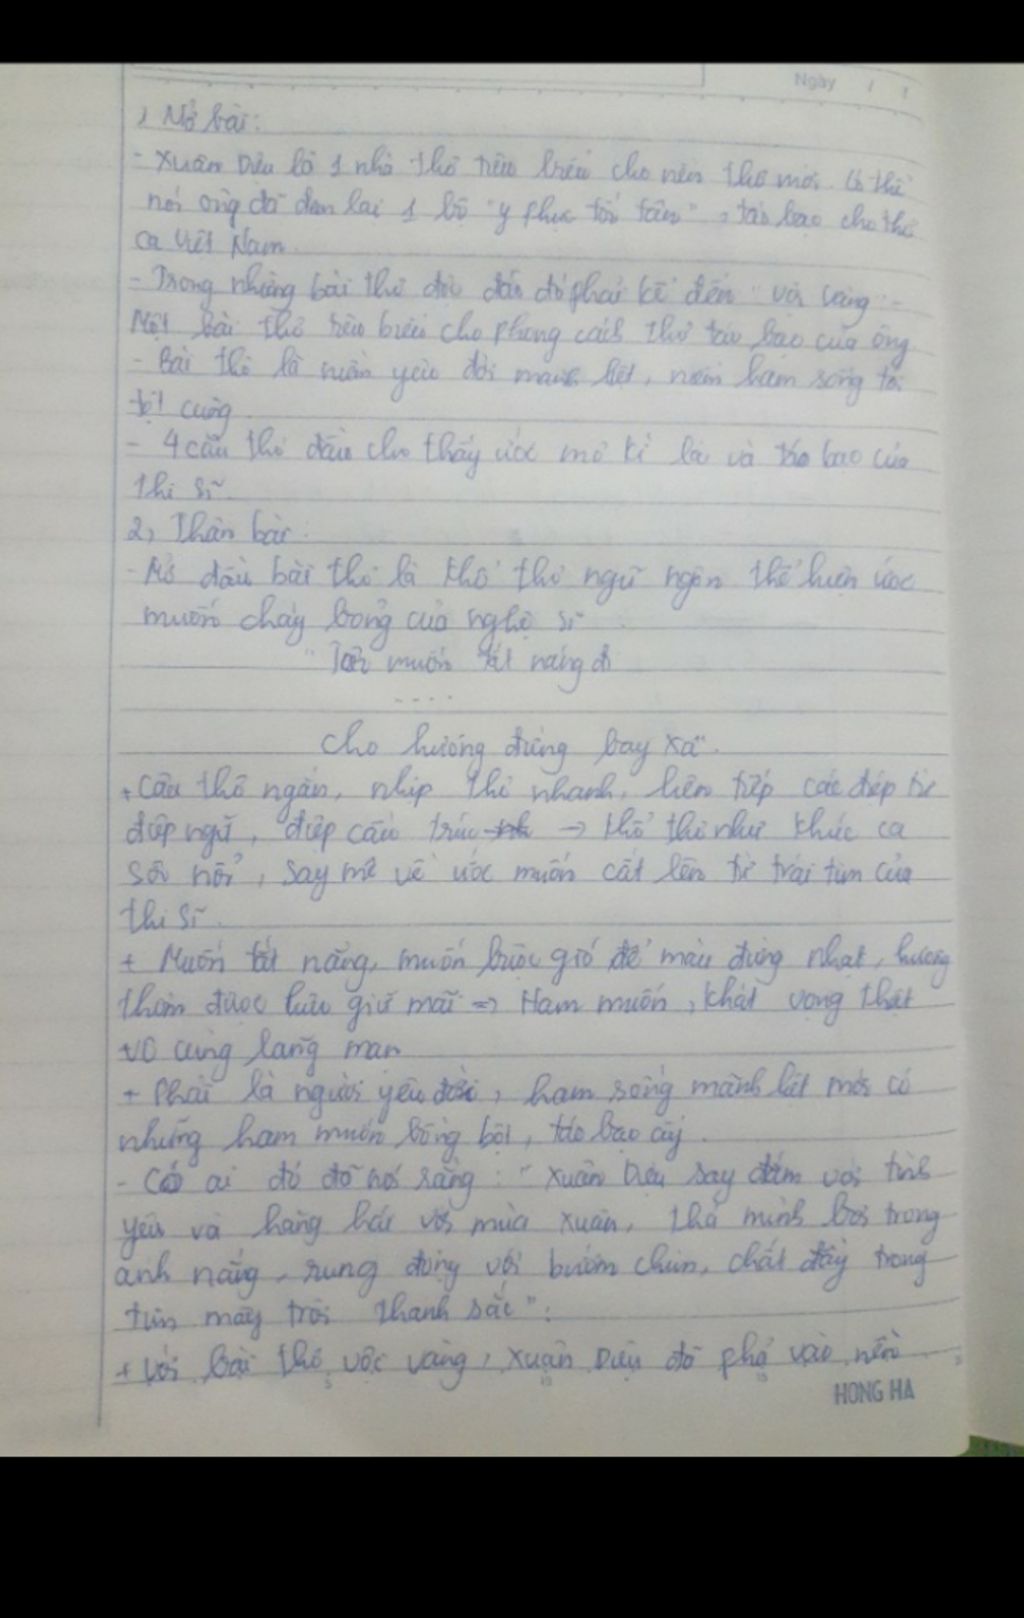 Ngày / /
1 Mở bài:
- Xuân Diệu là 1 nhà thơ tiêu biểu cho nền thơ mới. Có thể
nói ông đã đem lại 1 bộ "y phục tối tân", táo bạo cho thơ
ca Việt Nam.
- Trong những bài thơ đó phải kể đến "vội vàng" -
Một bài thơ tiêu biểu cho phong cách thơ táo bạo của ông
- Bài thơ là niềm yêu đời mãnh liệt, niềm ham sống tới
tột cùng.
- 4 câu thơ đầu cho thấy ước mơ kì lạ và táo bạo của
thi sĩ.
2, Thân bài.
- Mở đầu bài thơ là khổ thơ ngũ ngôn thể hiện ước
muốn cháy bỏng của nghệ sĩ
"Tôi muốn tắt nắng đi
....
Cho hương đừng bay xa".
+ Câu thơ ngắn, nhịp thơ nhanh, liên tiếp các điệp từ
điệp ngữ, điệp cấu trúc → khổ thơ như khúc ca
sôi nổi, say mê về ước muốn cất lên từ trái tim của
thi sĩ.
+ Muốn tắt nắng, muốn buộc gió để màu đừng nhạt, hương
thơm được lưu giữ mãi => Ham muốn, khát vọng thật
vô cùng lãng mạn
+ Phải là người yêu đời, ham sống mãnh liệt mới có
những ham muốn bồng bột, táo bạo ấy.
- Có ai đó đã nói rằng: "Xuân Diệu say đắm với tình
yêu và hăng hái với mùa xuân, thả mình bơi trong
ánh nắng, rung động với bướm chim, chất đầy trong
tim mây trời thanh sắc".
+ Với bài thơ vội vàng, Xuân Diệu đã phả vào nền
HONG HA